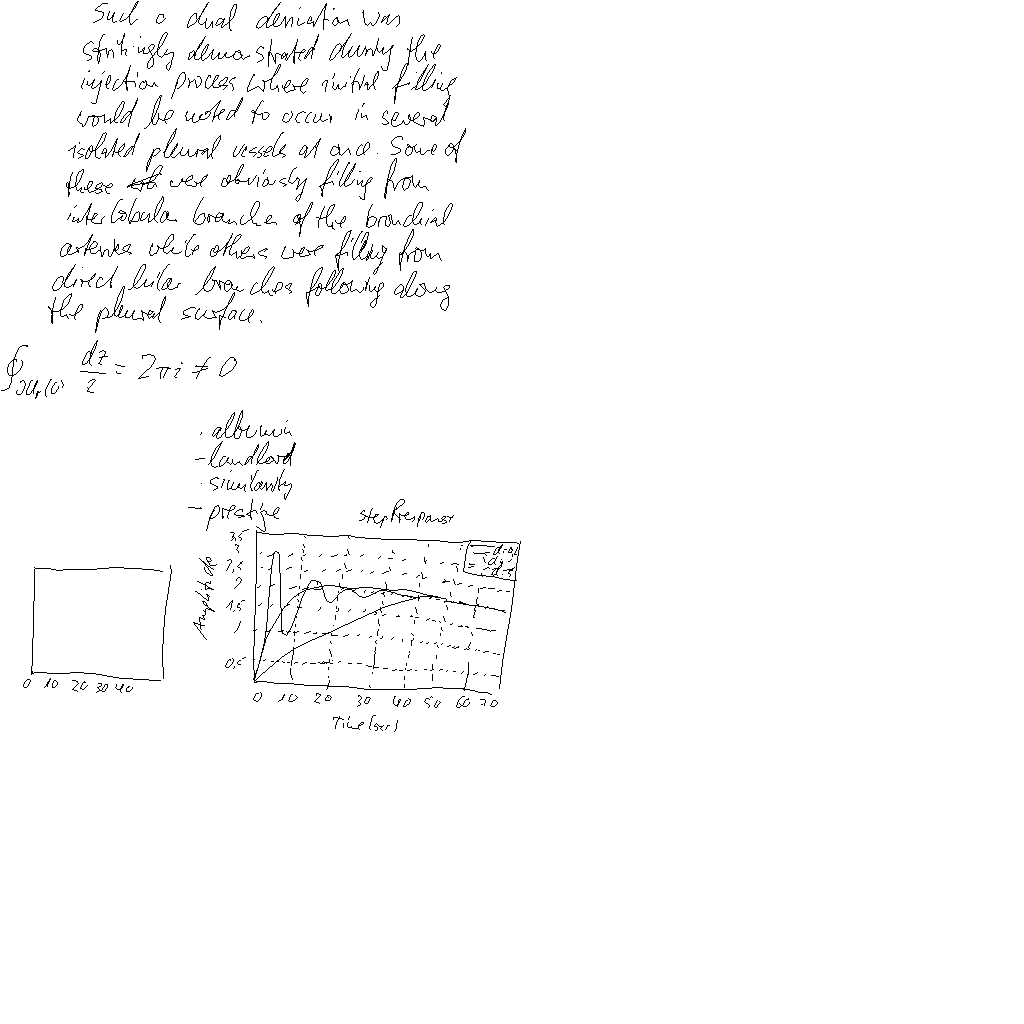 Such a dual derivation was
strikingly demonstrated during the
injection process where initial filling
would be noted to occur in several
isolated pleural vessels at once. Some of
these were obviously filling from
interlobular branches of the bronchial
arteries while others were filling from
direct hilar branches following along
the pleural surface.
∮∂Ur(0) dz/z = 2πi ≠ 0
· albumin
- landlord
· similarity
- prestige
step Response
3,5
3
2,5
2
1,5
1
0,5
Amplitude
0 10 20 30 40 50 60 70
Time (sec)
0 10 20 30 40